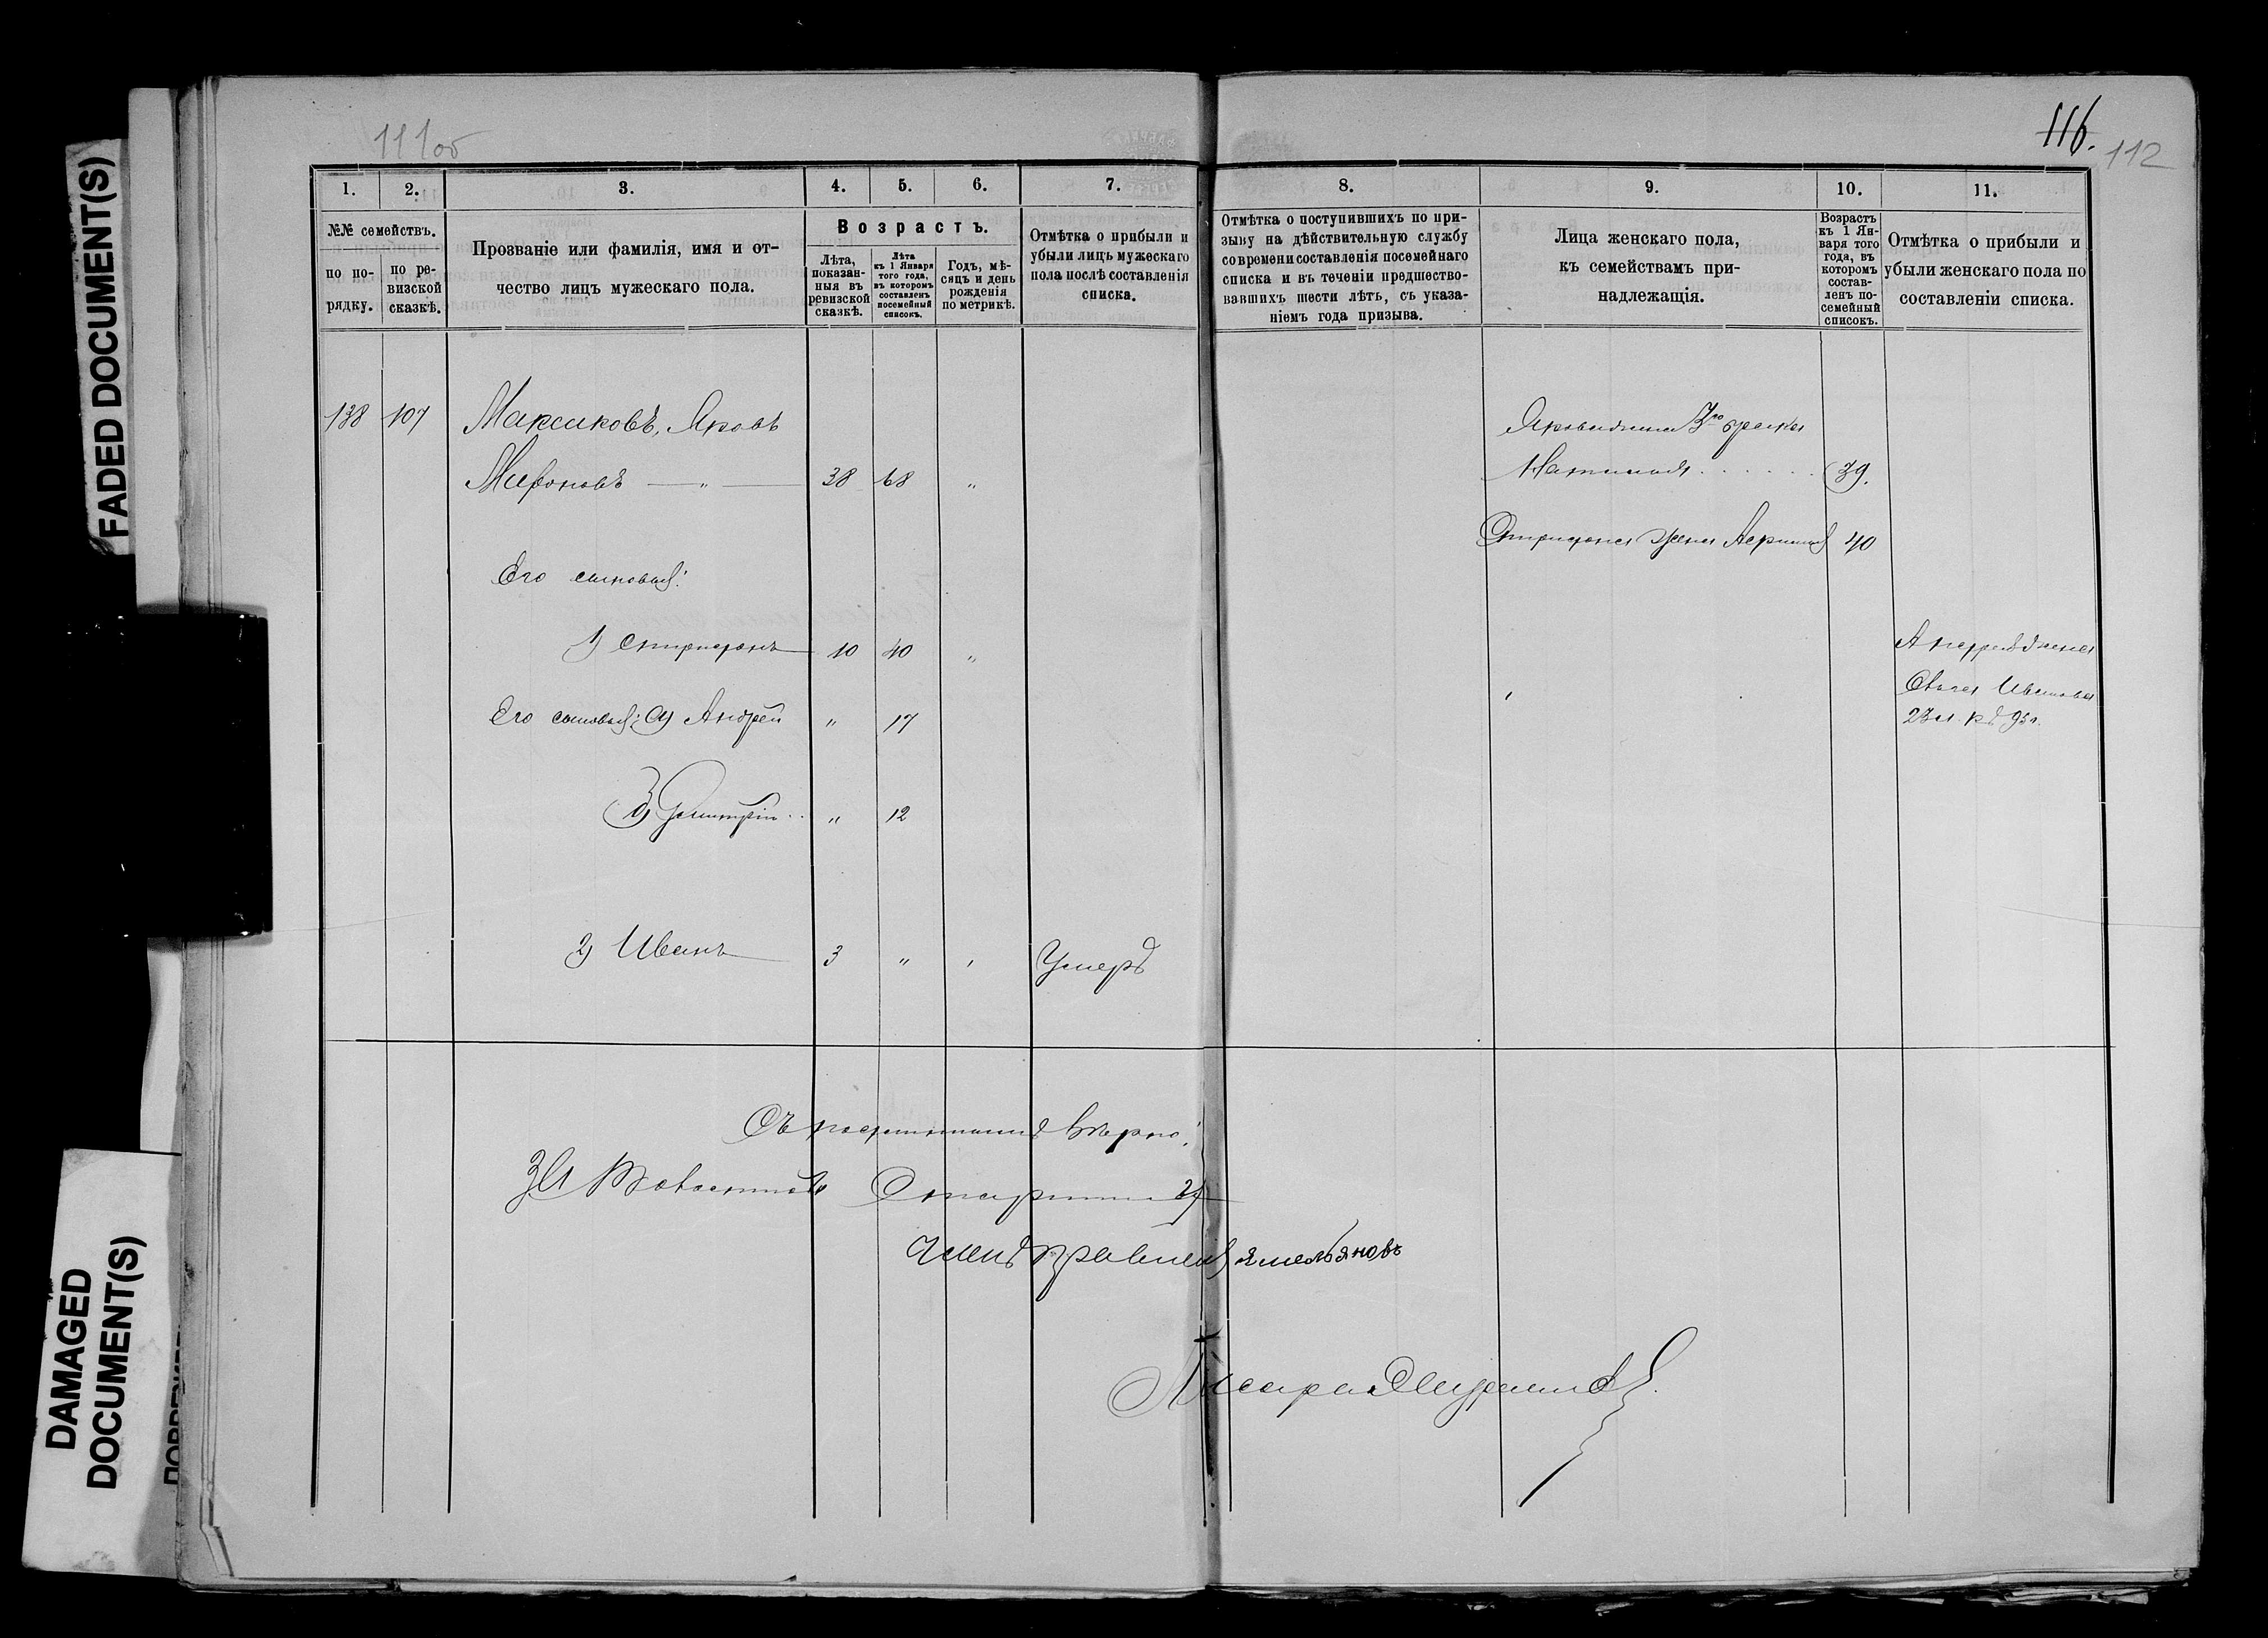 FADED DOCUMENT(S)
DAMAGED
DOCUMENT(S)
111об
116.
112
1. 2. 3. 4. 5. 6. 7. 8. 9. 10. 11.
№№ семействъ.
по по-
рядку.
по ре-
визской
сказкѣ.
Прозваніе или фамилія, имя и от-
чество лицъ мужескаго пола.
Возрастъ.
Лѣта,
показан-
ныя въ
ревизской
сказкѣ.
Лѣта
къ 1 Января
того года,
въ которомъ
составленъ
посемейный
списокъ.
Годъ, мѣ-
сяцъ и день
рожденія
по метрикѣ.
Отмѣтка о прибыли и
убыли лицъ мужескаго
пола послѣ составленія
списка.
Отмѣтка о поступившихъ по при-
зыву на дѣйствительную службу
со времени составленія посемейнаго
списка и въ теченіи предшество-
вавшихъ шести лѣтъ, съ указа-
ніемъ года призыва.
Лица женскаго пола,
къ семействамъ при-
надлежащія.
Возрастъ
къ 1 Ян-
варя того
года, въ
которомъ
состав-
ленъ по-
семейный
списокъ.
Отмѣтка о прибыли и
убыли женскаго пола по
составленіи списка.
138 107 Максиковъ, Яковъ
Мироновъ — „ — 38 68 „
Якова жена 3го брака
Наталья . . . . . . 39.
жена 40
Его сыновья:
1) 10 40 „
Его сыновья: а) Андрей „ 17
жена
Ивановна
23 л. къ 95 г.
Димитрій . . „ 12
2) Иванъ 3 „ Умеръ
вѣрно:
Членъ Правленія Емельяновъ
Писарь